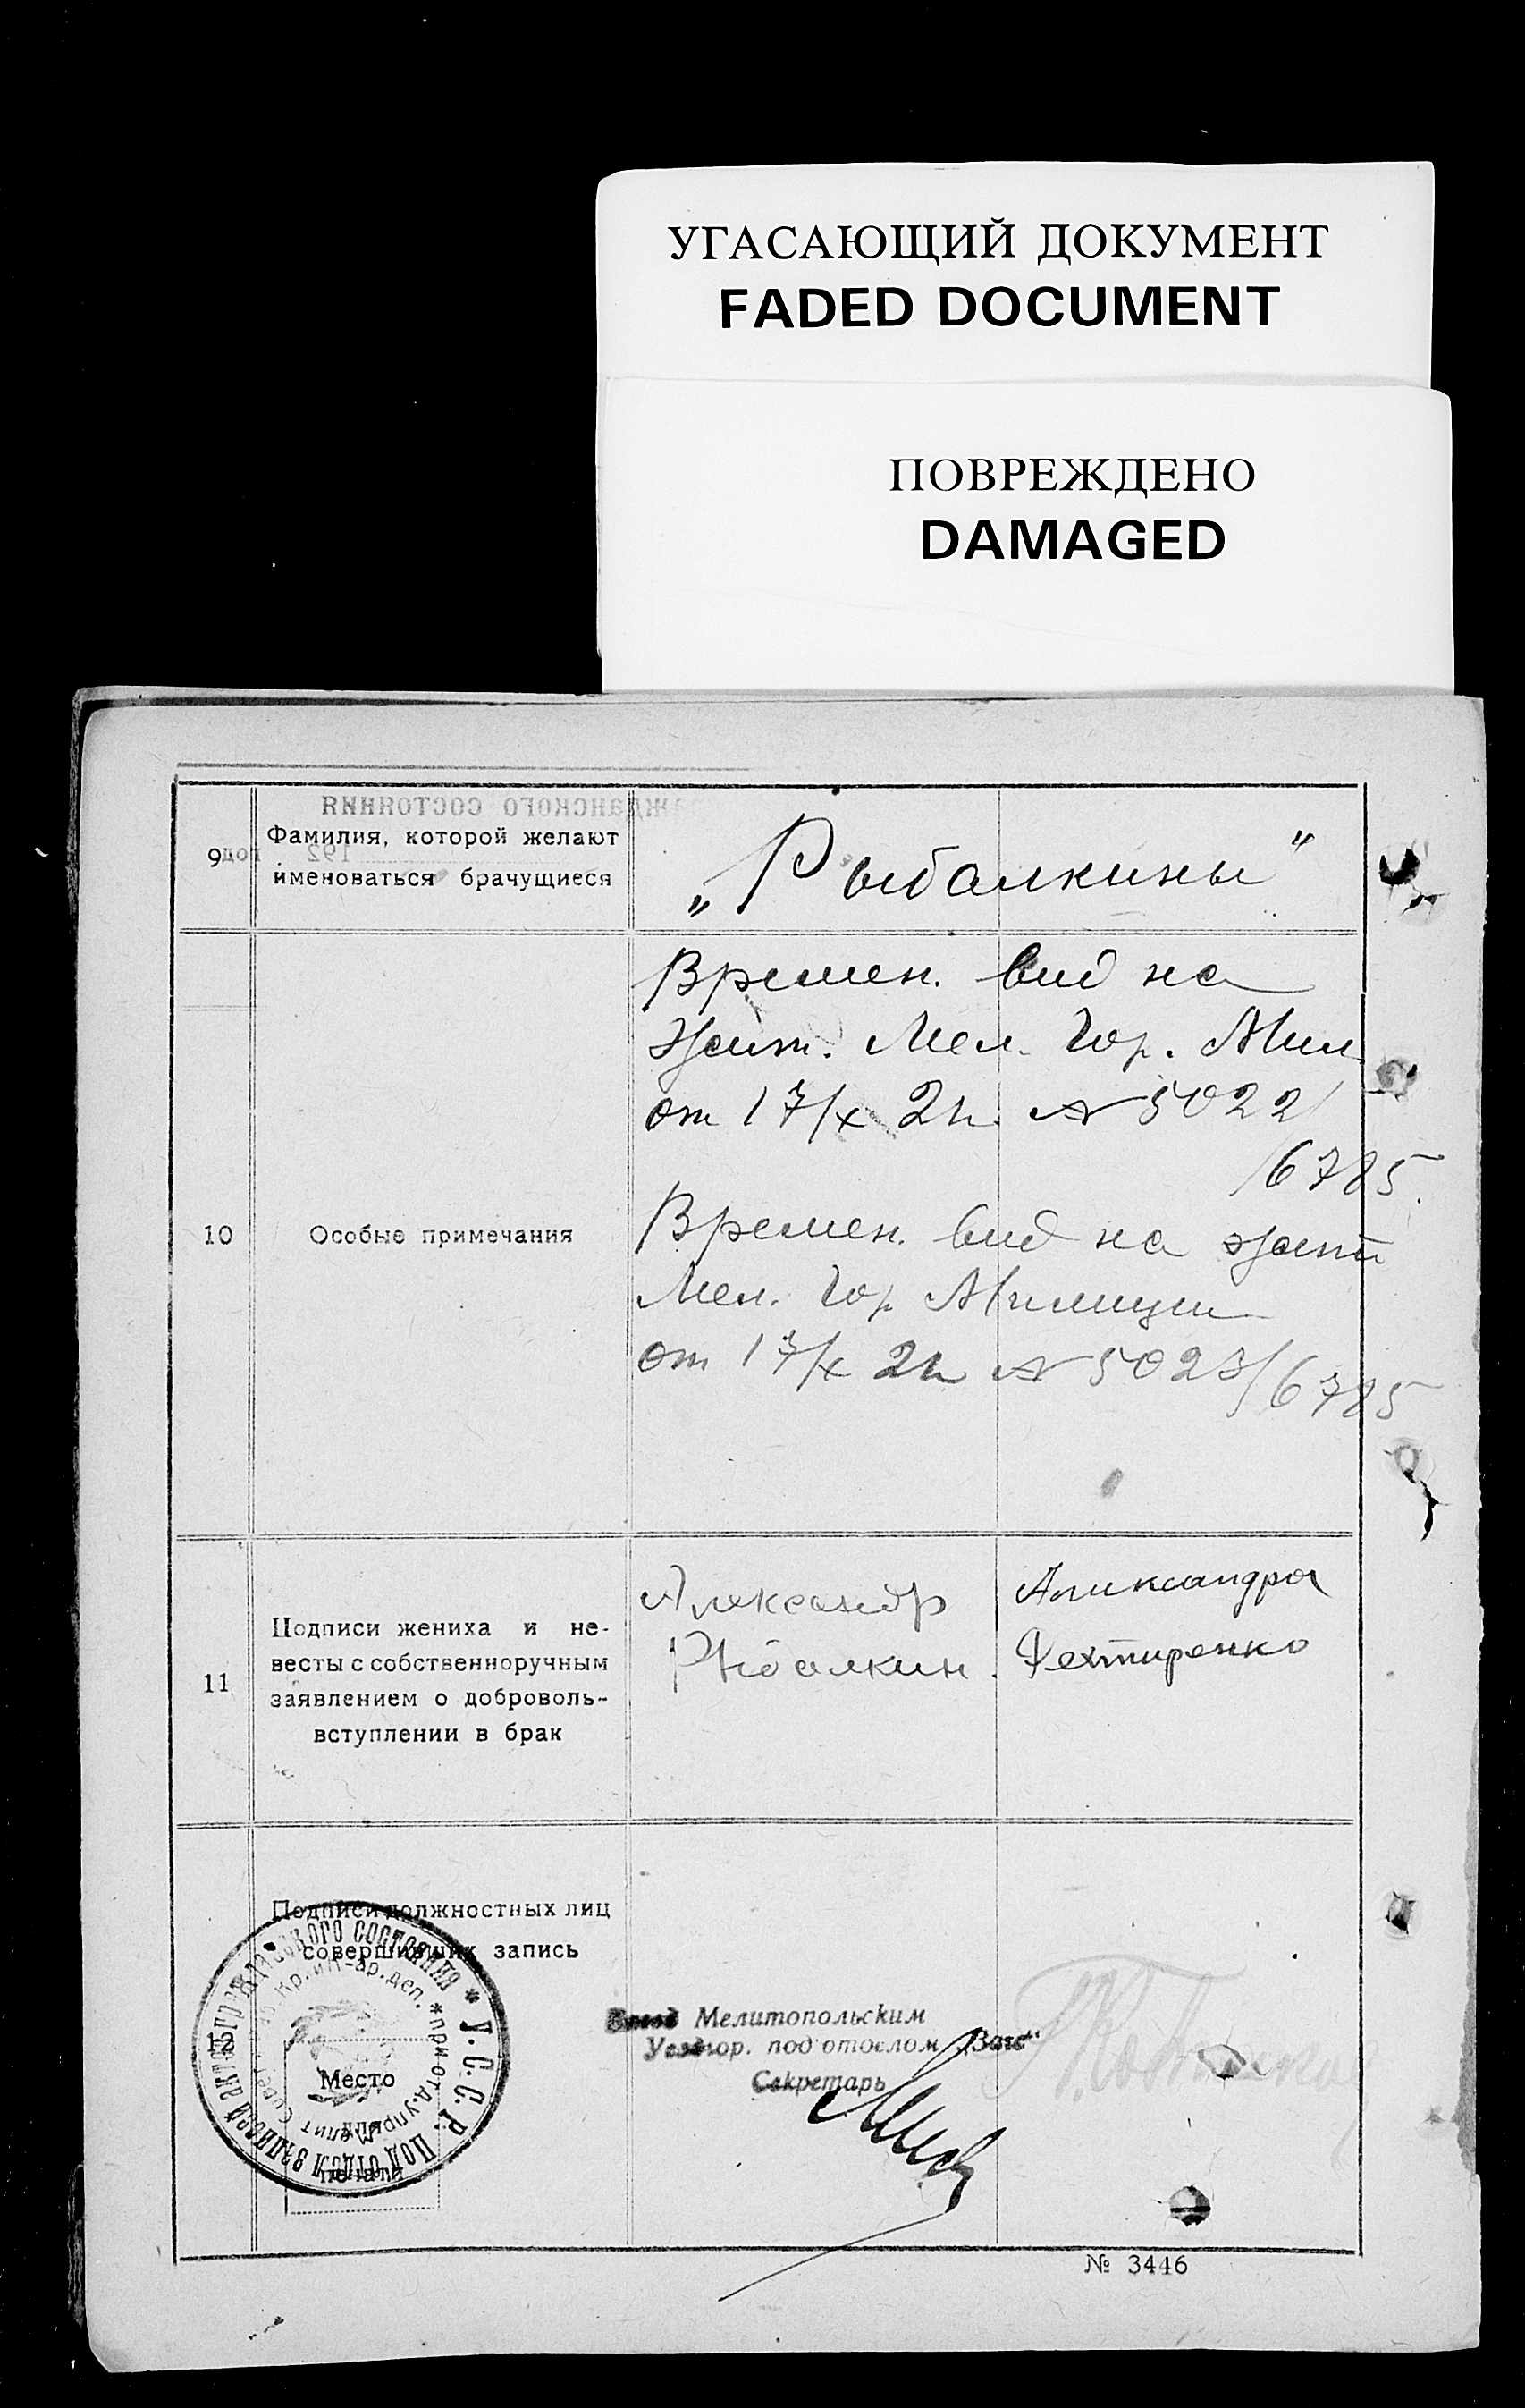 УГАСАЮЩИЙ ДОКУМЕНТ
FADED DOCUMENT
ПОВРЕЖДЕНО
DAMAGED
гражданского состояния
192 год
9
Фамилия, которой желают
именоваться брачущиеся
„Рыбалкины"
10
Особые примечания
Времен. вид на
жит. Мел. Гор. Мил.
от 17/X 2 г. № 5022/
/6785.
Времен. вид на жит
Мел. Гор Милиции
от 17/X 2 г № 5023/6785
11
Подписи жениха и не-
весты с собственноручным
заявлением о доброволь-
вступлении в брак
Александр
Рыбалкин.
Александра
Дехтиренко
12
Подписи должностных лиц
совершивших запись
Место
для
печати
У.С.С.Р. ПОДОТДЕЛ ЗАПИСЕЙ АКТОВ ГРАЖДАНСКОГО СОСТОЯНИЯ
при отд. управл.
Кр. и Кр-ар. деп.
Завед Мелитопольским
Уездгор. подотделом „Загс"
Секретарь
№ 3446